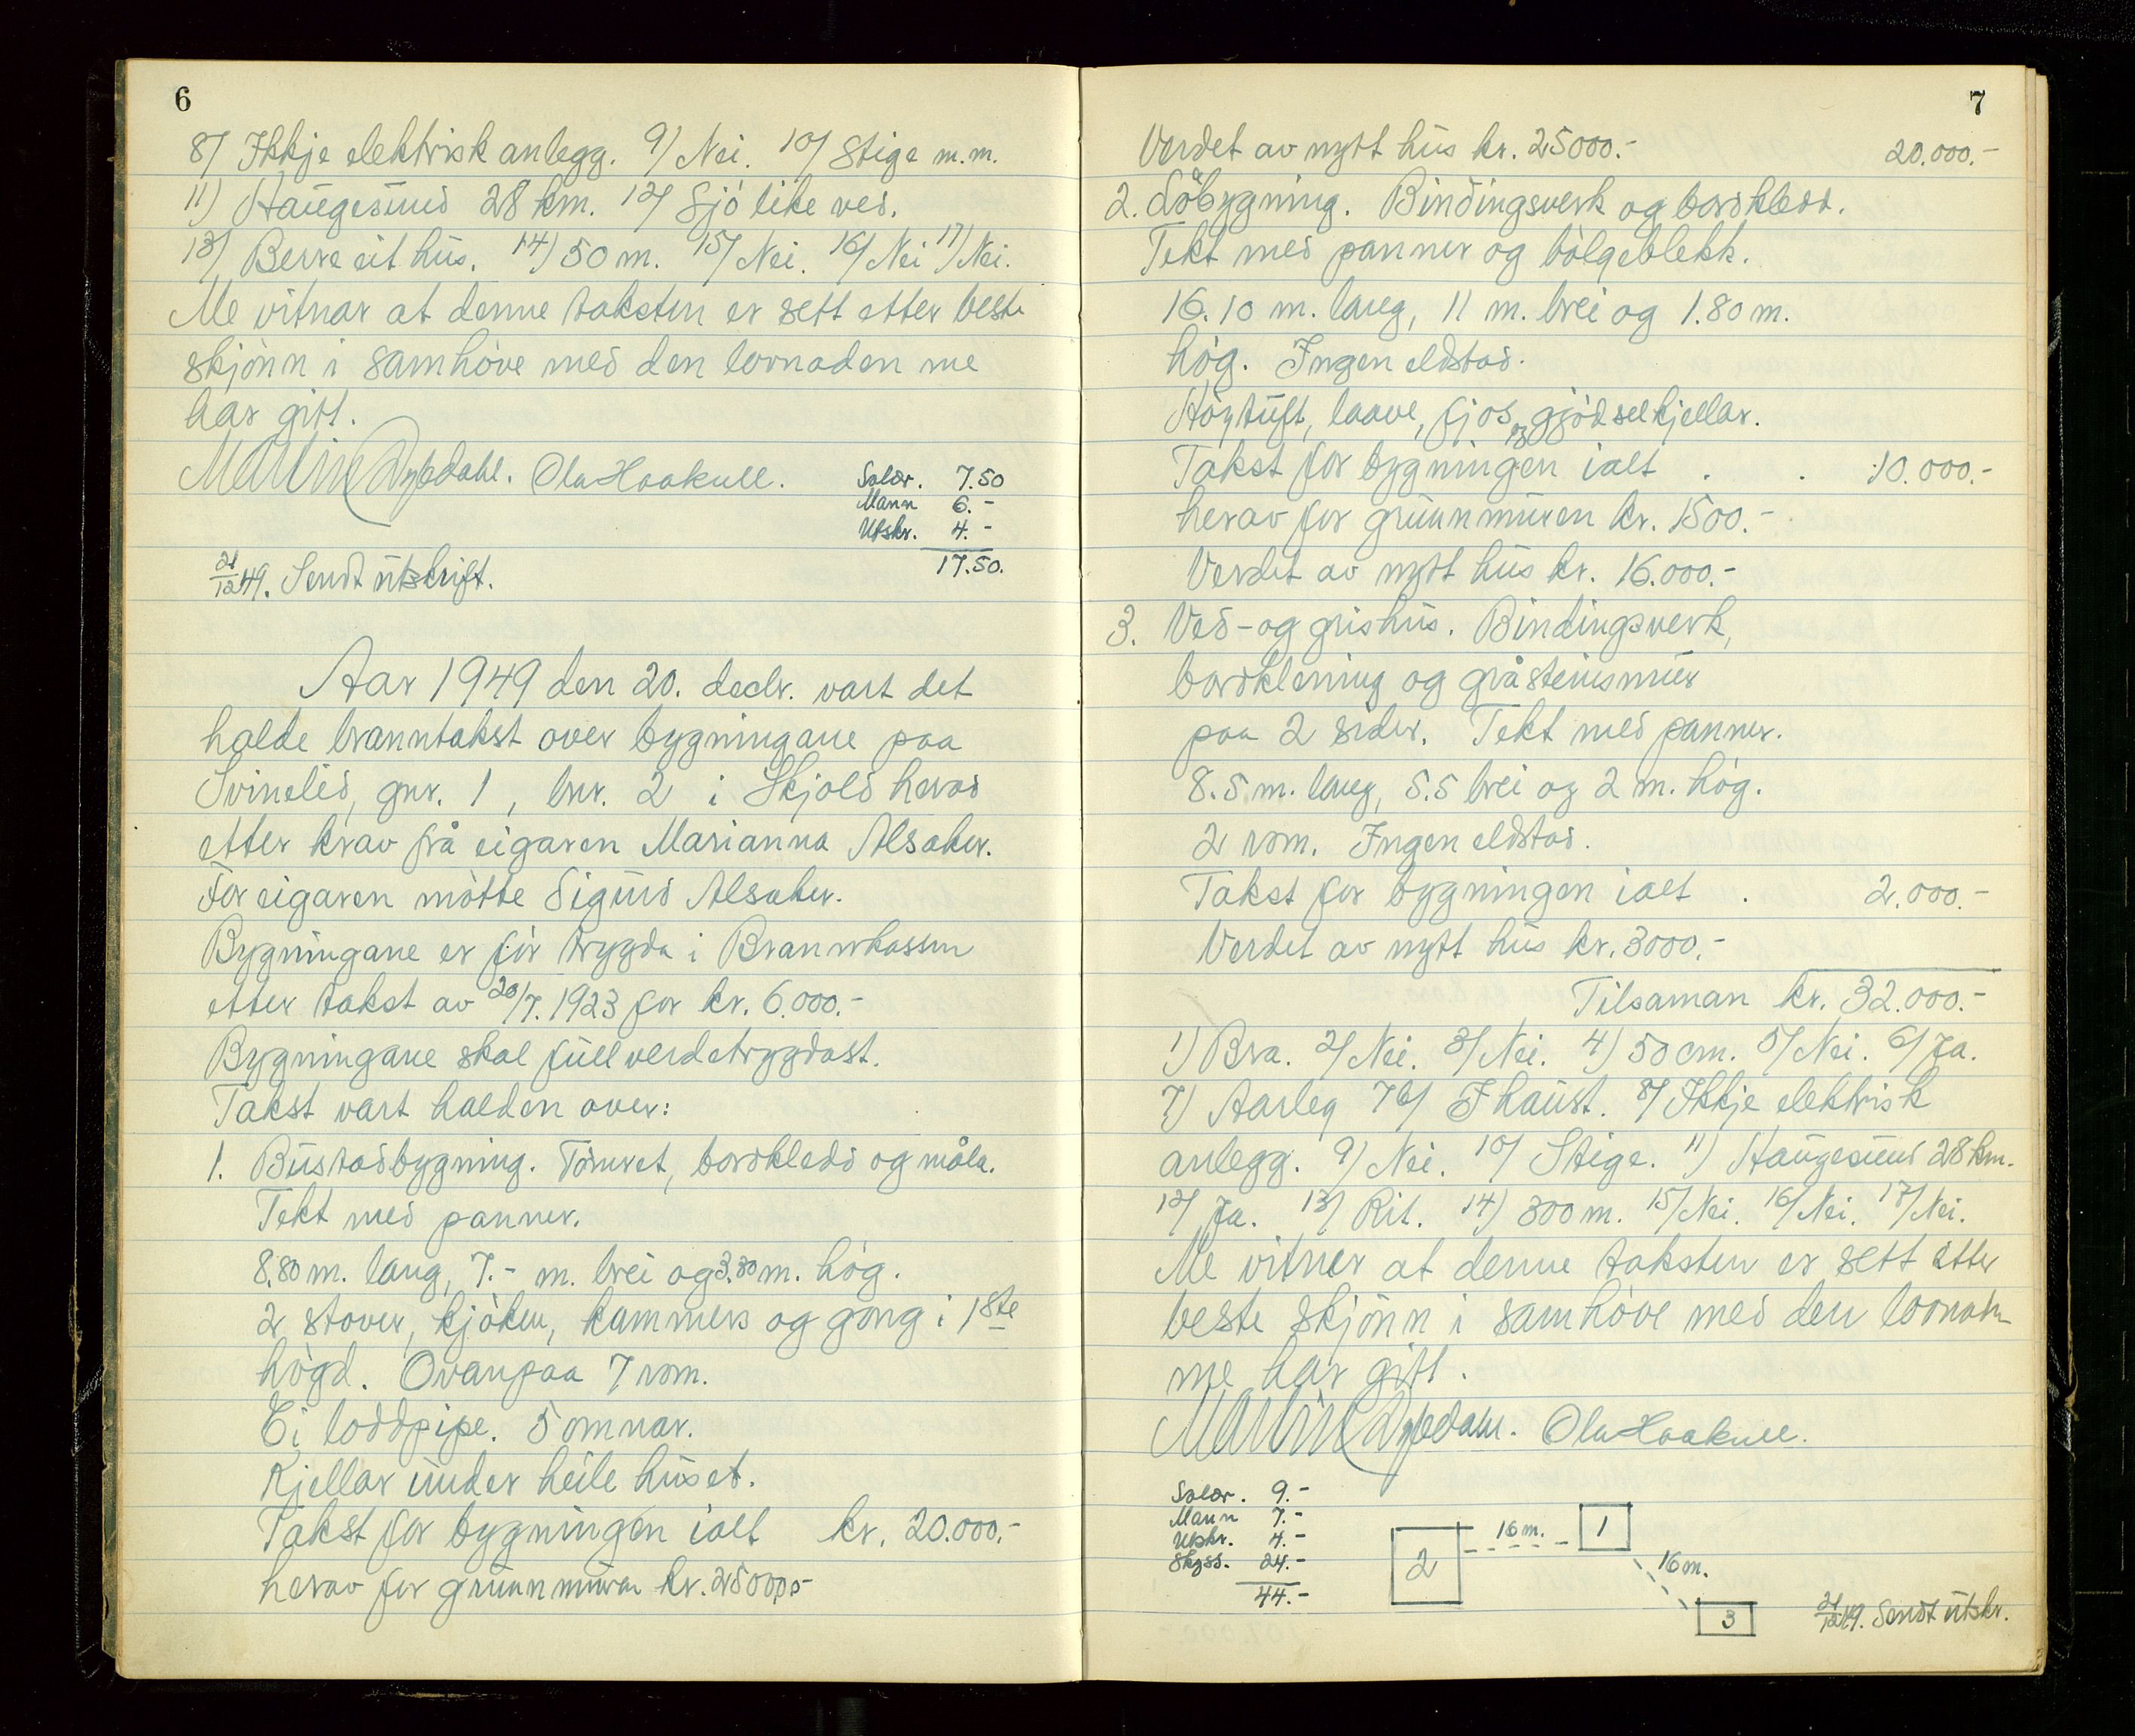 6
8/ Ikkje elektrisk anlegg. 9/ Nei. 10/ Stige m.m.
11) Haugesund 28 km. 12/ Sjö like ved.
13/ Berre eit hus. 14/ 50 m. 15/ Nei. 16/ Nei 17/ Nei.
Me vitnar at denne taksten er sett etter beste
skjönn i samhöve med den lovnaden me
har gitt.
Martin Dybdahl. Ola Haakull.
Salær. 7.50
Mann 6.-
Utskr. 4.-
17.50.
21/12 49. Sendt utskrift.
Aar 1949 den 20. decbr. vart det
halde branntakst over bygningane paa
Svinelid, gnr. 1, bnr. 2 i Skjold herad
etter krav frå eigaren Marianna Alsaker.
For eigaren mötte Sigurd Alsaker.
Bygningane er för trygda i Brannkassen
etter takst av 20/7. 1923 for kr. 6.000.-
Bygningane skal fullverdetrygdast.
Takst vart halden over:
1. Bustadbygning. Tömret, bordkledd og måla.
Tekt med panner.
8.80 m. lang, 7.- m. brei og 3.30 m. hög.
2 stover, kjöken, kammers og gong i 1ste
högd. Ovanpaa 7 rom.
Ei loddpipe. 5 omnar.
Kjellar under heile huset.
Takst for bygningen ialt kr. 20.000.-
herav for grunnmuren kr. 2500.-
7
Verdet av nytt hus kr. 25000.- 20.000.-
2. Löbygning. Bindingsverk og bordkledd.
Tekt med panner og bölgeblekk.
16.10 m. lang, 11 m. brei og 1.80 m.
hög. Ingen eldstad.
Höytuft, laave, fjos og gjödselkjellar.
Takst for bygningen ialt . . 10.000.-
herav for grunnmuren kr. 1500.-
Verdet av nytt hus kr. 16.000.-
3. Ved- og grishus. Bindingsverk,
bordklening og gråsteinsmur
paa 2 sider. Tekt med panner.
8.5 m. lang, 5.5 brei og 2 m. hög.
2 rom. Ingen eldstad.
Takst for bygningen ialt . 2.000.-
Verdet av nytt hus kr. 3000.-
Tilsaman kr. 32.000.-
1) Bra. 2/ Nei. 3/ Nei. 4) 50 cm. 5/ Nei. 6/ Ja.
7) Aarleg 7b/ I haust. 8/ Ikkje elektrisk
anlegg. 9) Nei. 10/ Stige. 11) Haugesund 28 km.
12/ Ja. 13/ Rit. 14) 300 m. 15/ Nei. 16/ Nei. 17/ Nei.
Me vitner at denne taksten er sett etter
beste skjönn i samhöve med den lovnaden
me har gitt.
Martin Dybdahl. Ola Haakull.
Salær. 9.-
Mann 7.-
Utskr. 4.-
Skyss. 24.-
44.-
2 16 m. 1
16 m.
3
21/12 49. Sendt utskr.